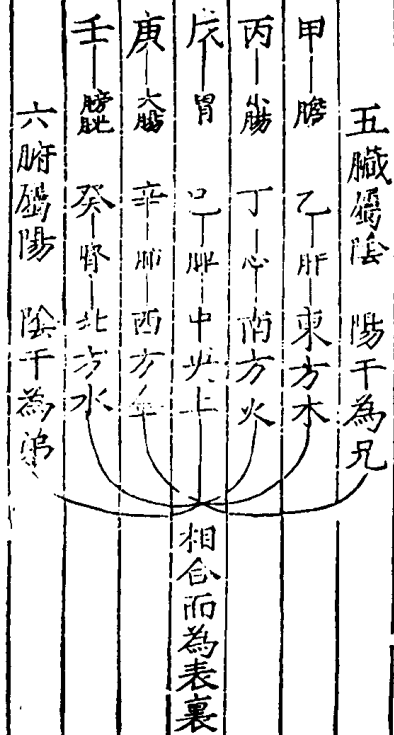 五臓屬陰　陽干為兄
甲—膽　乙—肝—東方木
丙—小腸　丁—心—南方火
戊—胃　己—脾—中央土
庚—大腸　辛—肺—西方金
壬—膀胱　癸—腎—北方水
六腑屬陽　陰干為弟
相合而為表裏